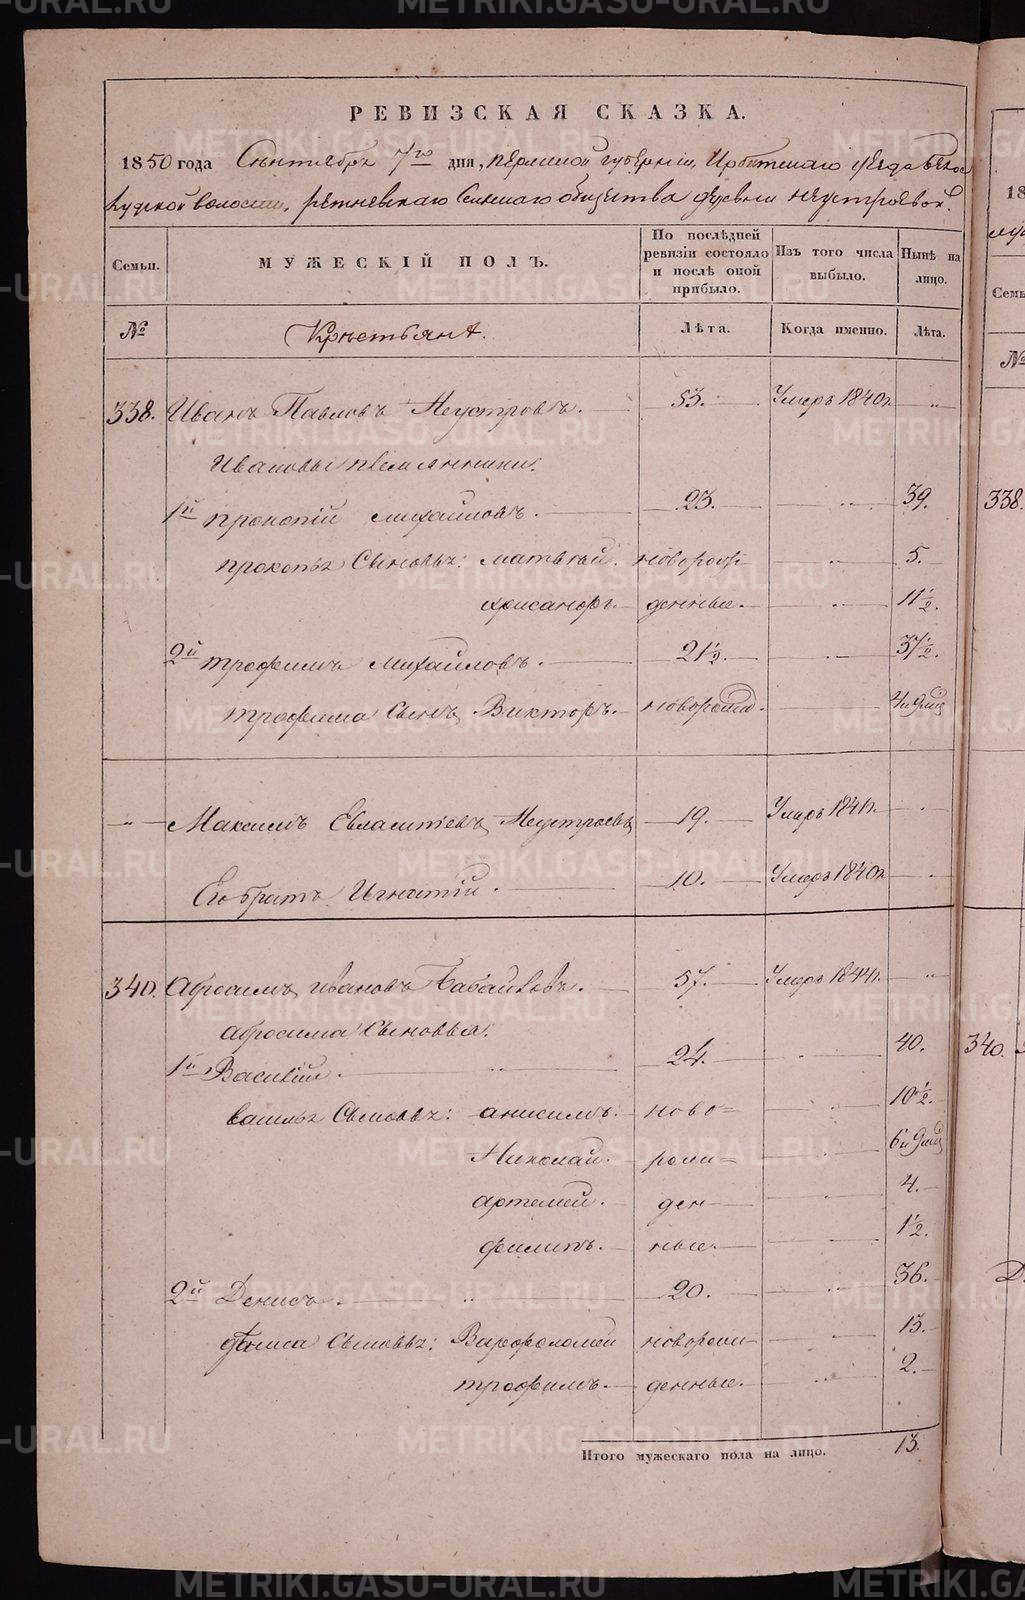 РЕВИЗСКАЯ СКАЗКА.
1850 года Сентября 7го дня, Пермской губернии, Ирбитскаго уезда Бело
лудской волости, Ретневскаго Сельскаго общества деревни Неустроевой.
Семьи. МУЖЕСКІЙ ПОЛЪ. По послѣдней ревизіи состояло и послѣ оной прибыло. Изъ того числа выбыло. Нынѣ на лицо.
№ Крестьяне. Лѣта. Когда именно. Лѣта.
338. Иванъ Павловъ Неустровъ. 53. Умеръ 1840г. „
Ивановы племянники.
1й Прокопій Михайловъ. 23. „ 39.
Прокопья Сыновья: Матвей. новорож 5.
Хрисанфъ. денные. 1 1/2.
2й Трофимъ Михайловъ. 21 1/2. 37 1/2.
Трофима Сынъ Викторъ. новорожд. 4 и 9 мцъ
„ Максимъ Евлампіевъ Неустроевъ 19. Умеръ 1841г.
Его братъ Игнатій. 10. Умеръ 1840г.
340. Абросимъ Ивановъ Бабайловъ. 57. Умеръ 1844г. „
Абросима Сыновья.
1й Василій. „ 24. 40.
Василья Сыновья: Анисимъ. ново= 10 1/2.
Николай. рожд= 6 и 9 мцъ
Артемей. ден 4.
Филипъ. ные. 1 1/2.
2й Денисъ. „ 20. „ 36.
Дениса Сыновья: Варфоломей новорож 13.
Трофимъ. денные. 2.
Итого мужескаго пола на лицо. 13.
18
Семьи
№
338.
340.
METRIKI.GASO-URAL.RU